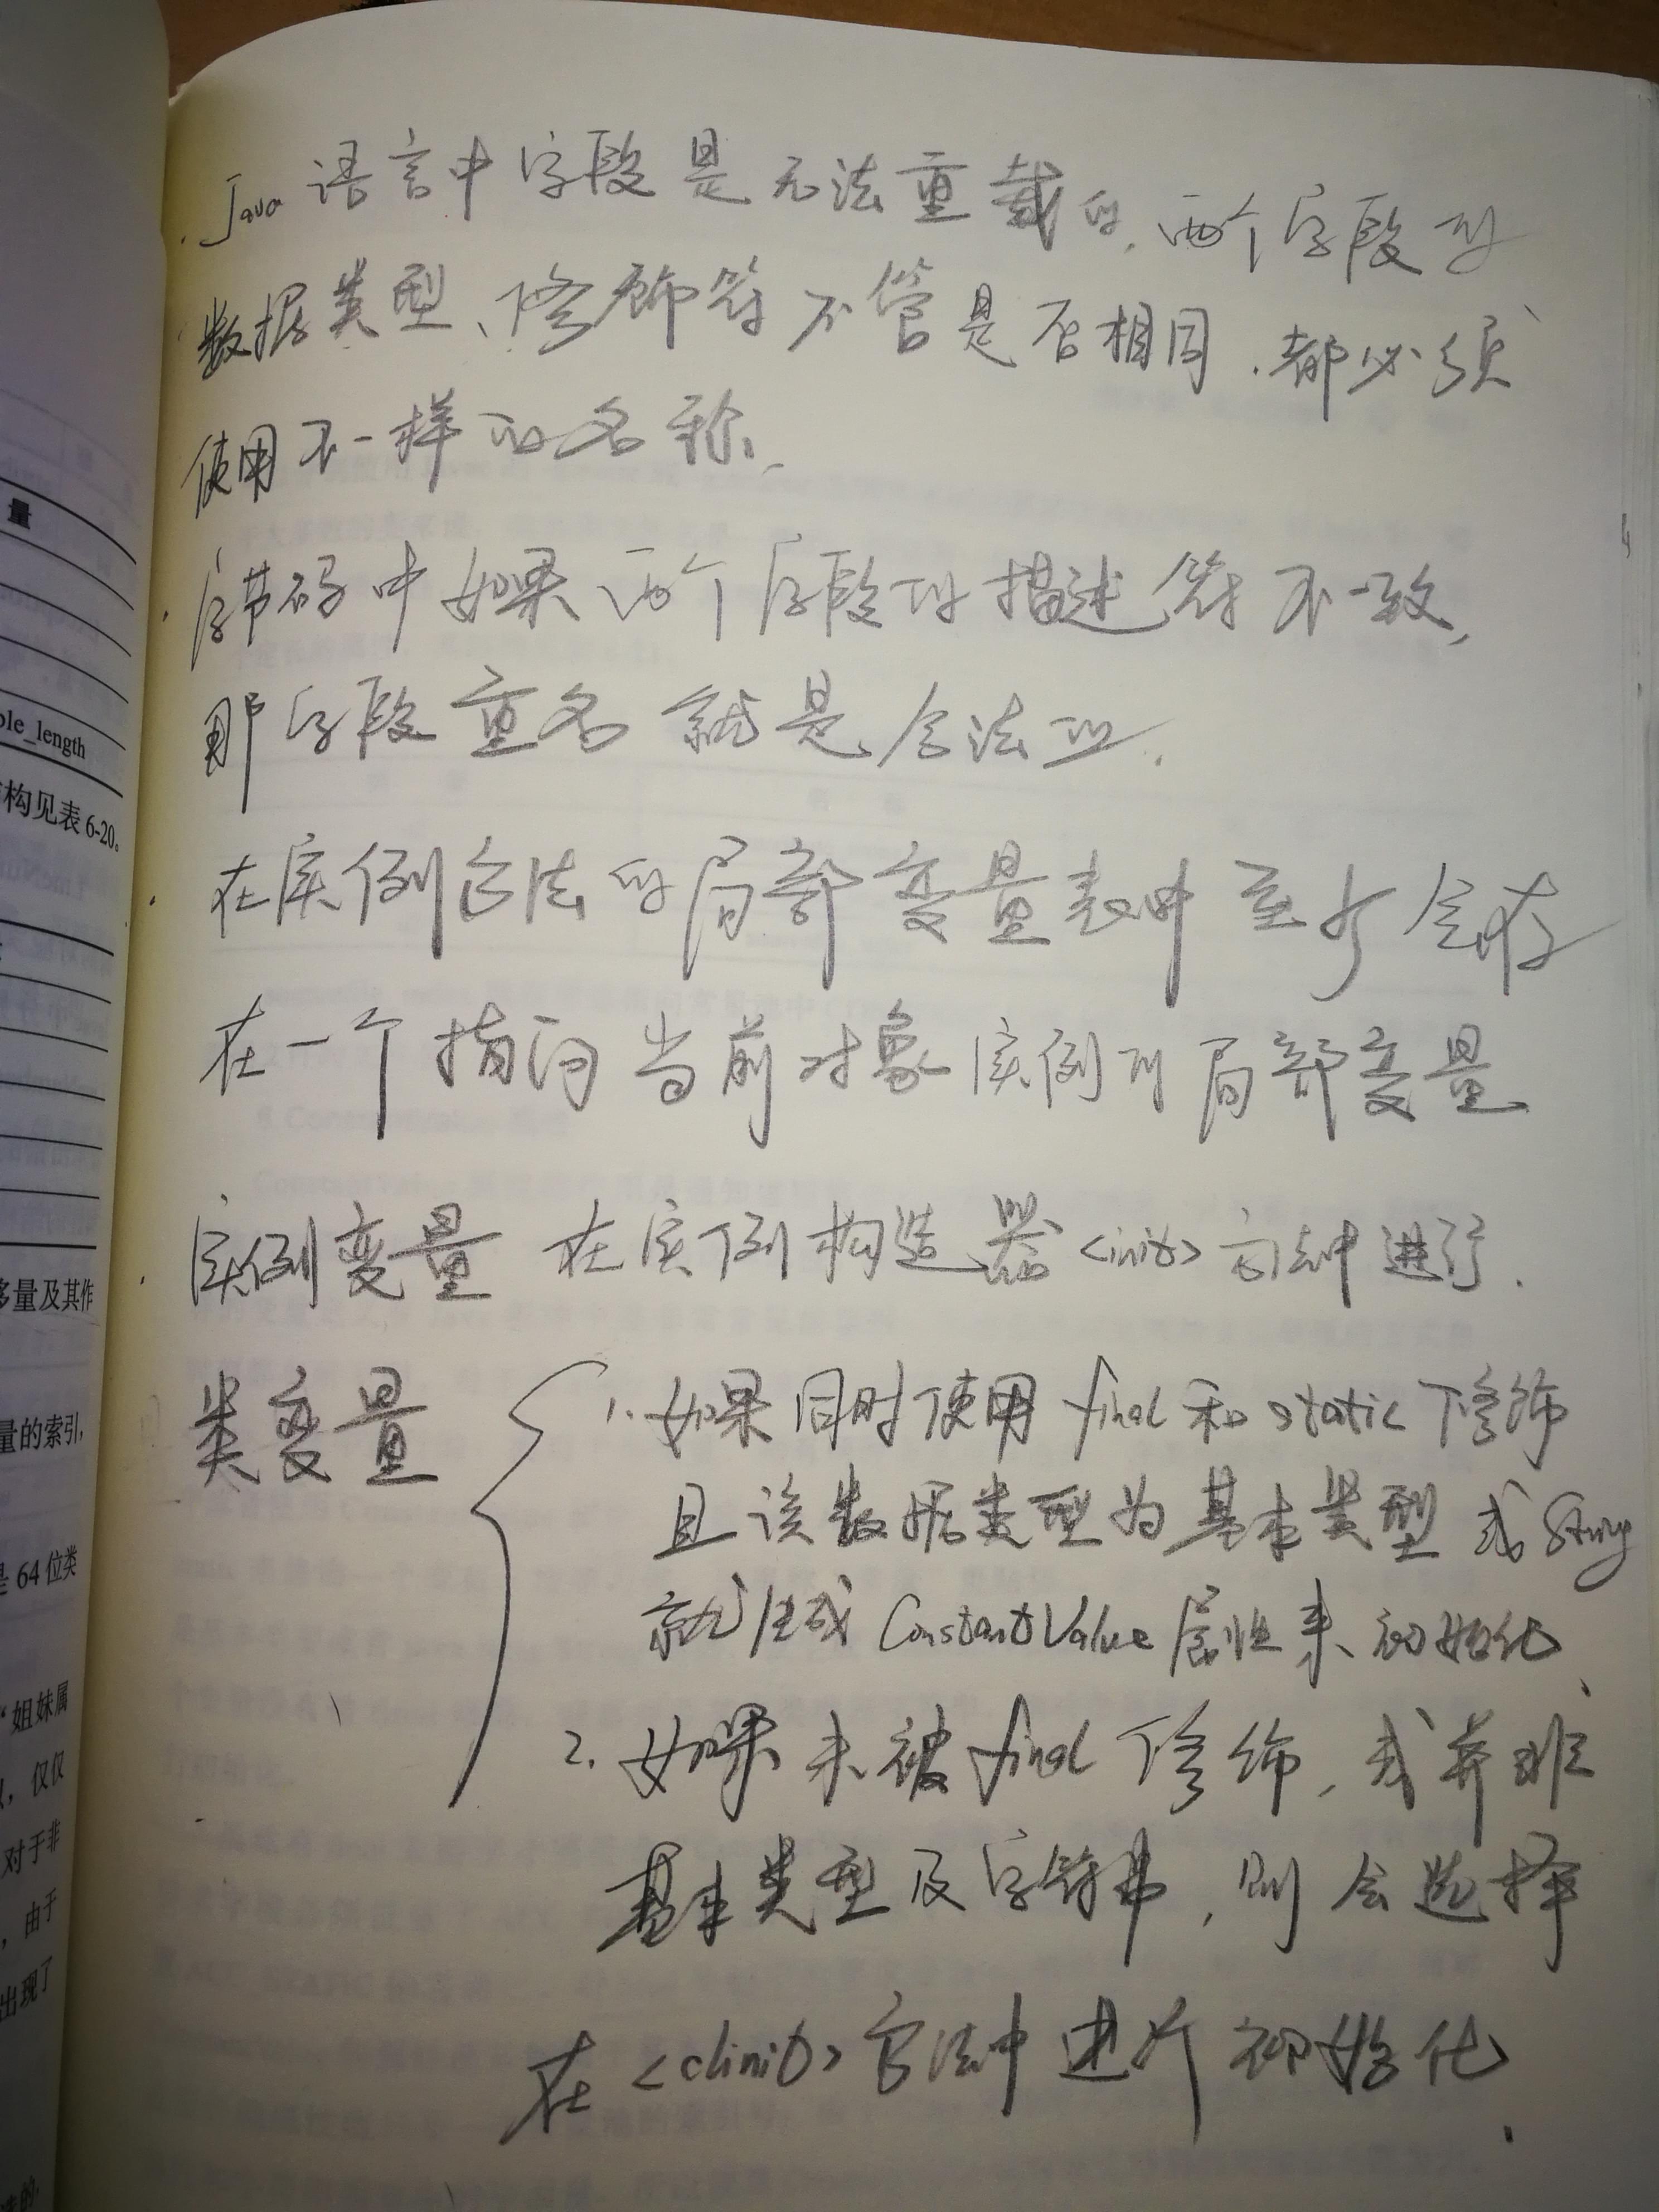 量
ble_length
构见表6-20。
移量及其作
量的索引,
是64位类
“姐妹属
,仅仅
对于非
,由于
出现了
·Java语言中字段是无法重载的,两个字段的
数据类型、修饰符不管是否相同,都必须
使用不一样的名称,
·字节码中如果两个字段的描述符不一致,
那字段重名就是合法的.
·在实例方法的局部变量表中至少会存
在一个指向当前对象实例的局部变量
·实例变量 在实例构造器<init>方法中进行.
类变量 { 1.如果同时使用final和static修饰
且该数据类型为基本类型或String
就生成ConstantValue属性来初始化、
2.如果未被final修饰,或并非
基本类型及字符串,则会选择
在<clinit>方法中进行初始化.